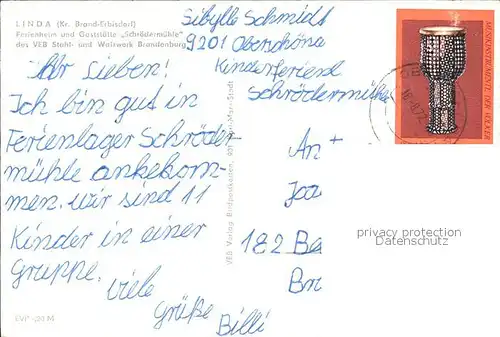 LINDA (Kr. Brand-Erbisdorf)
Ferienheim und Gaststätte „Schrödermühle"
des VEB Stahl- und Walzwerk Brandenburg
Ihr Lieben!
Ich bin gut in
Ferienlager Schröder
mühle ankekom-
men. wir sind 11
Kinder in einer
Gruppe.
Viele
Grüße
Billi
EVP
M
VEB Verlag Bildpostkarten,
Sibylle Schmidt
9201 Oberschöna
Kinderferienl
Schrödermühle
An
182 Be
MUSIKINSTRUMENTE DER VÖLKER
privacy protection
Datenschutz